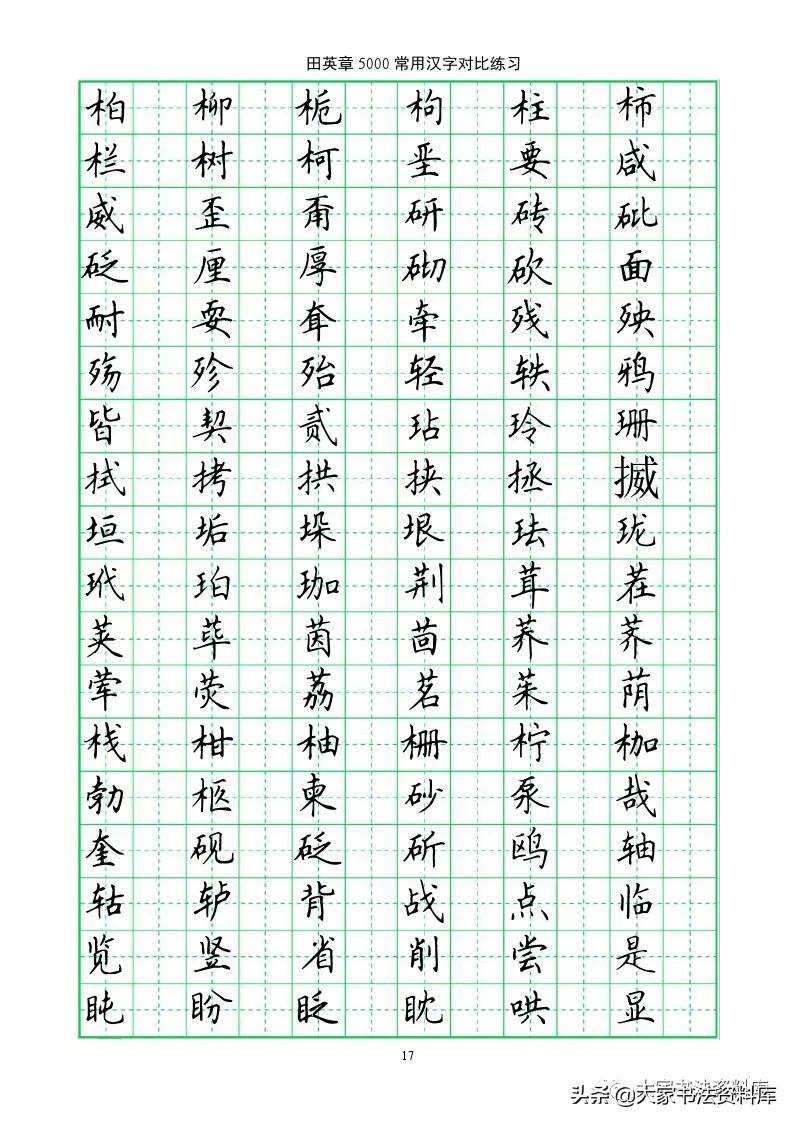 田英章5000常用汉字对比练习
柏 柳 栀 枸 柱 柿
栏 树 柯 垩 要 咸
威 歪 甭 研 砖 砒
砭 厘 厚 砌 砍 面
耐 耍 耷 牵 残 殃
殇 殄 殆 轻 轶 鸦
皆 契 贰 玷 玲 珊
拭 拷 拱 挟 拯 搣
垣 垢 垛 垠 珐 珑
玳 珀 珈 荆 茸 茬
荚 荜 茵 茴 荞 荠
荤 荧 荔 茗 茱 荫
栈 柑 柚 栅 柠 枷
勃 柩 柬 砂 泵 哉
奎 砚 砭 斫 鸥 轴
轱 轳 背 战 点 临
览 竖 省 削 尝 是
盹 盼 眨 眈 哄 显
17
头条@大家书法资料库